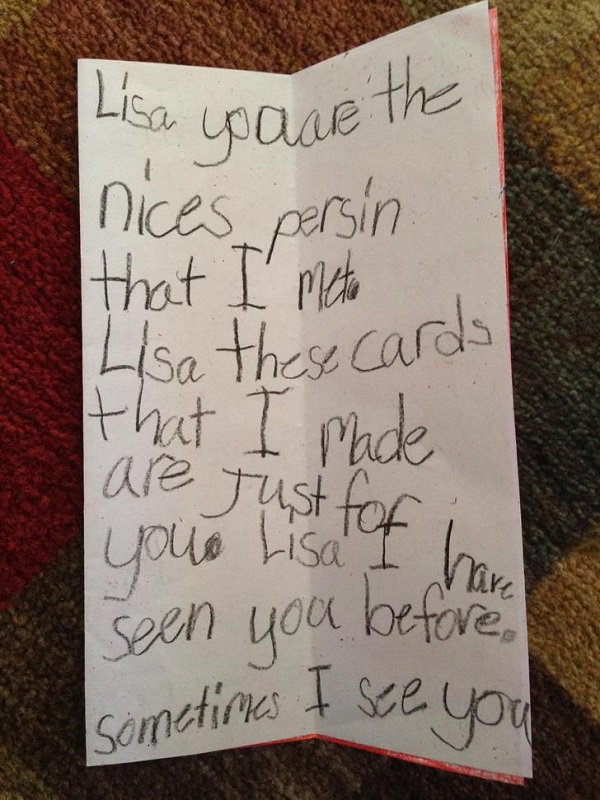 Lisa you are the
nices persin
that I met.
Lisa these cards
that I made
are Just for
you. Lisa I have
seen you before.
sometimes I see you